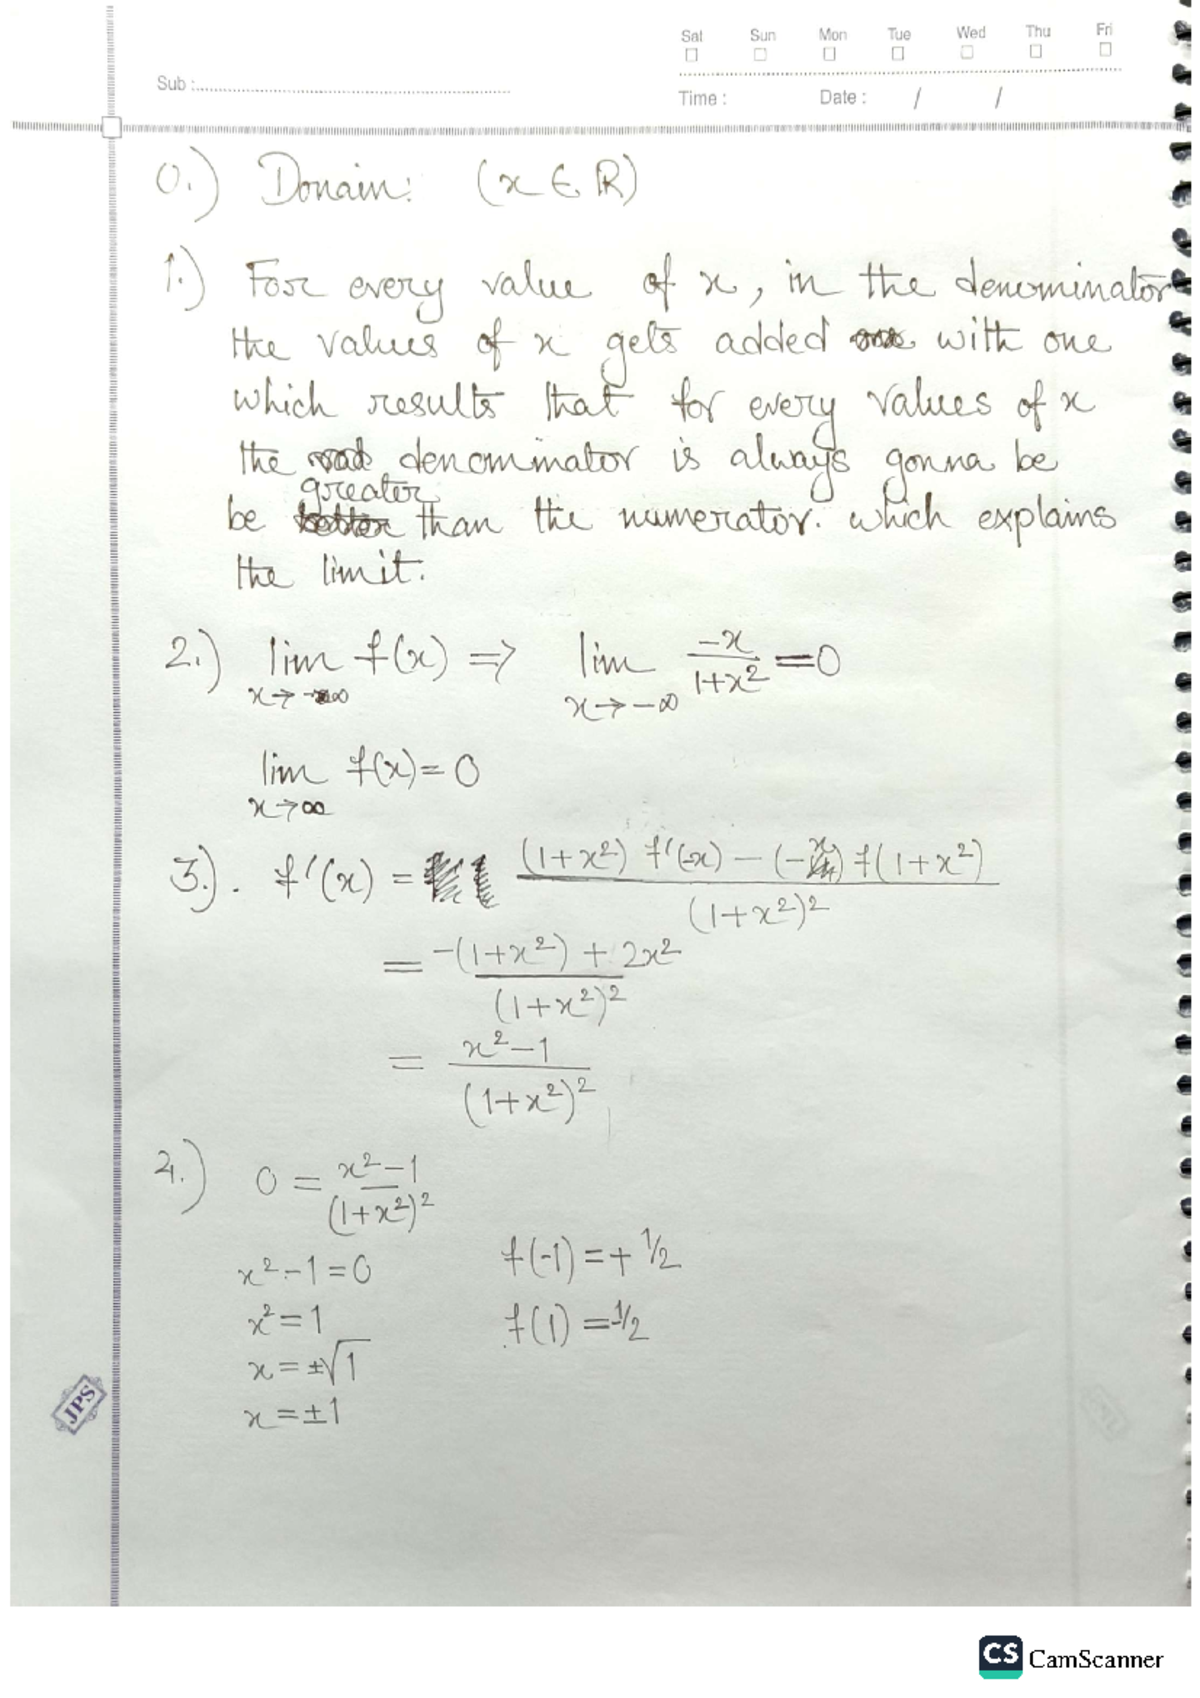 Sat Sun Mon Tue Wed Thu Fri
Sub :
Time : Date : / /
0.) Domain: (x ∈ ℝ)
1.) For every value of x, in the denominator
the values of x gets added with one
which results that for every values of x
the denominator is always gonna be
be greater than the numerator. which explains
the limit.
2.) lim x→-∞ f(x) => lim x→-∞ -x/(1+x²) = 0
lim x→∞ f(x) = 0
3.). f'(x) = ((1+x²) f'(-x) - (-x) f(1+x²))/(1+x²)²
= (-(1+x²) + 2x²)/(1+x²)²
= (x²-1)/(1+x²)²
4.) 0 = (x²-1)/(1+x²)²
x²-1=0 f(-1) = + 1/2
x²=1 f(1) = -1/2
x = ±√1
x = ±1
JPS
CS CamScanner